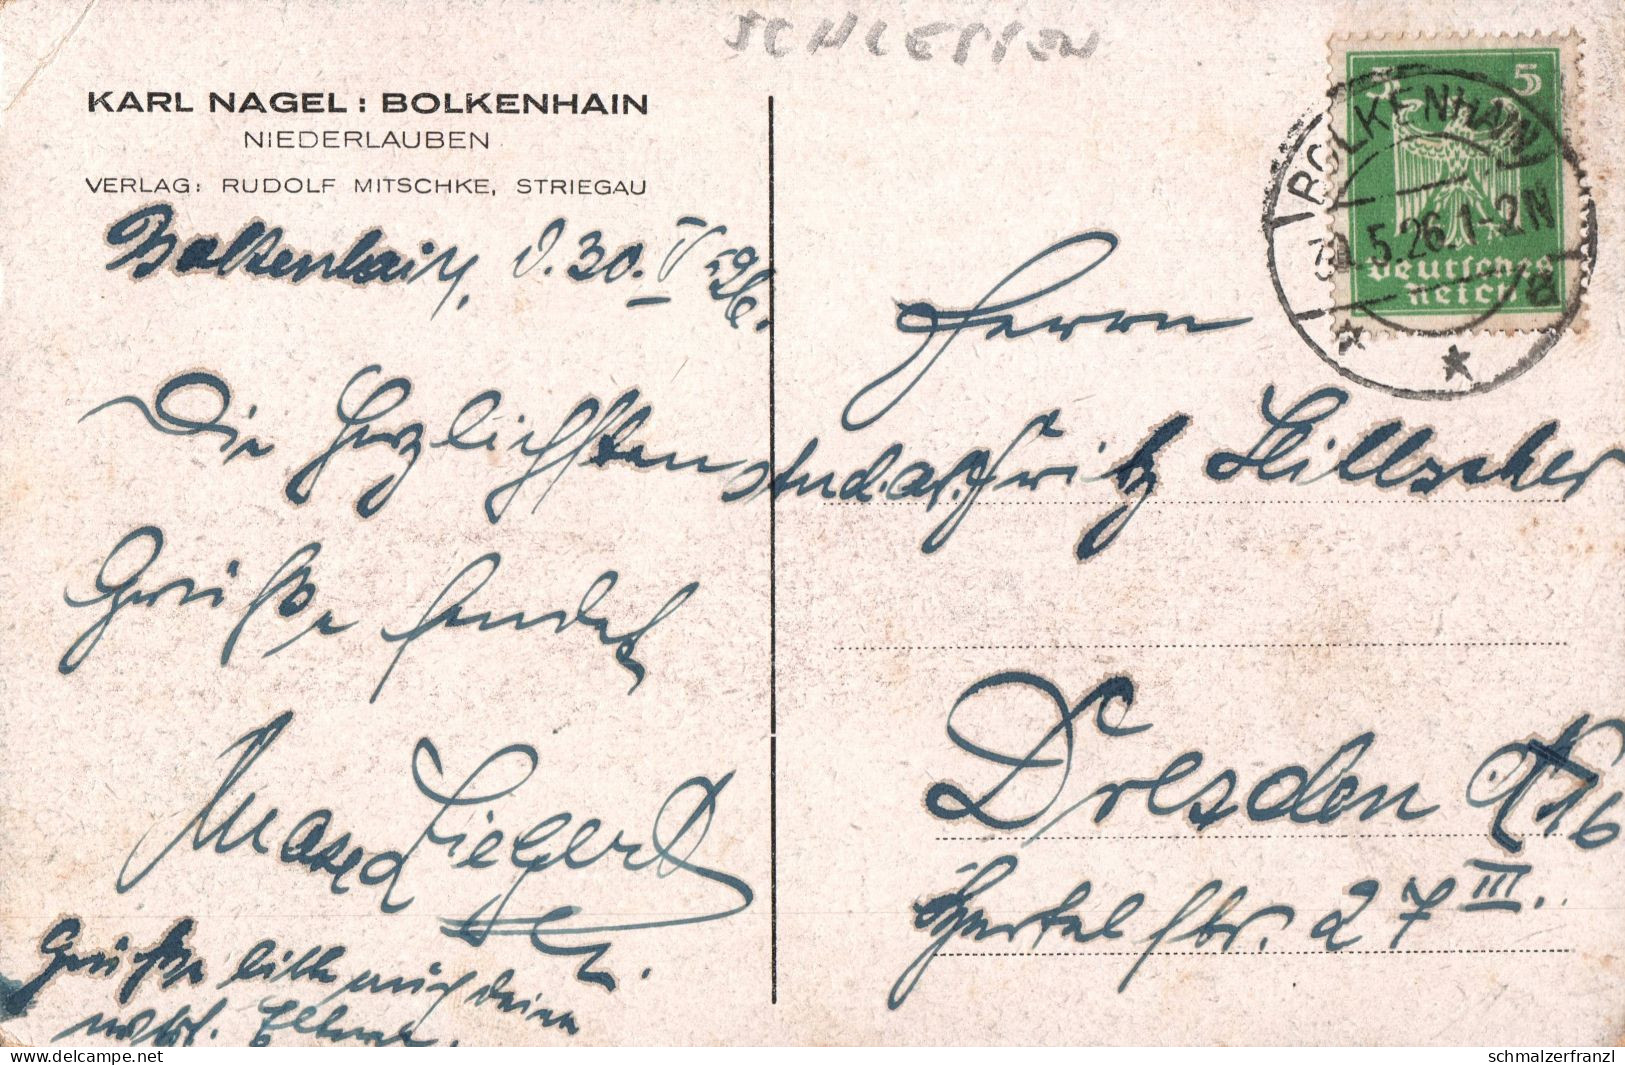 SCHLESIEN
KARL NAGEL : BOLKENHAIN
NIEDERLAUBEN
VERLAG: RUDOLF MITSCHKE, STRIEGAU
5 5
Deutsches
Reich
BOLKENHAIN
30.5.26.1-2N
a
Bolkenhain, d. 30. V 1926.
Die herzlichsten
Grüße sendet
Siegert
Grüße bitte auch deine
Eltern.
Herrn
stud. Fritz
Dresden A 16
Hertel str. 27 III.
schmalzerfranzl
delcampe.net